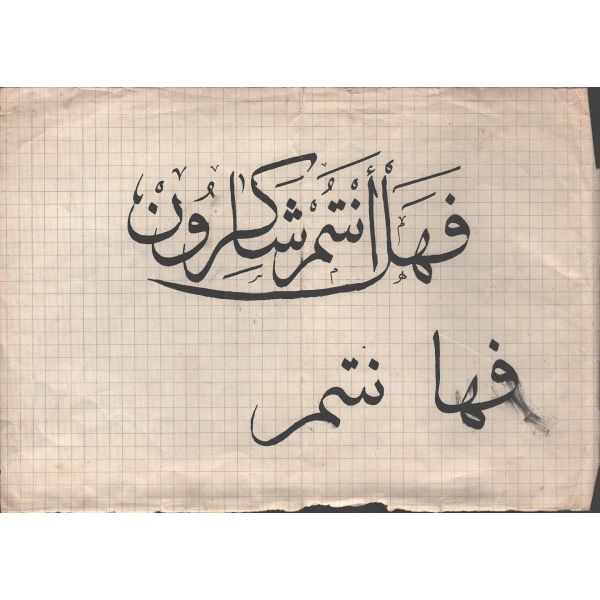 فَهَلْ أَنْتُمْ شَاكِرُونَ
فها نتم